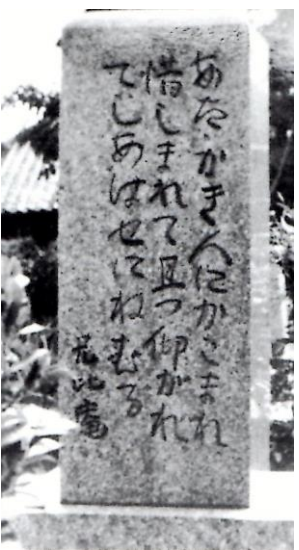 あたゝかき人にかこまれ
惜しまれて且つ仰がれ
てしあはせにねむる
比庵